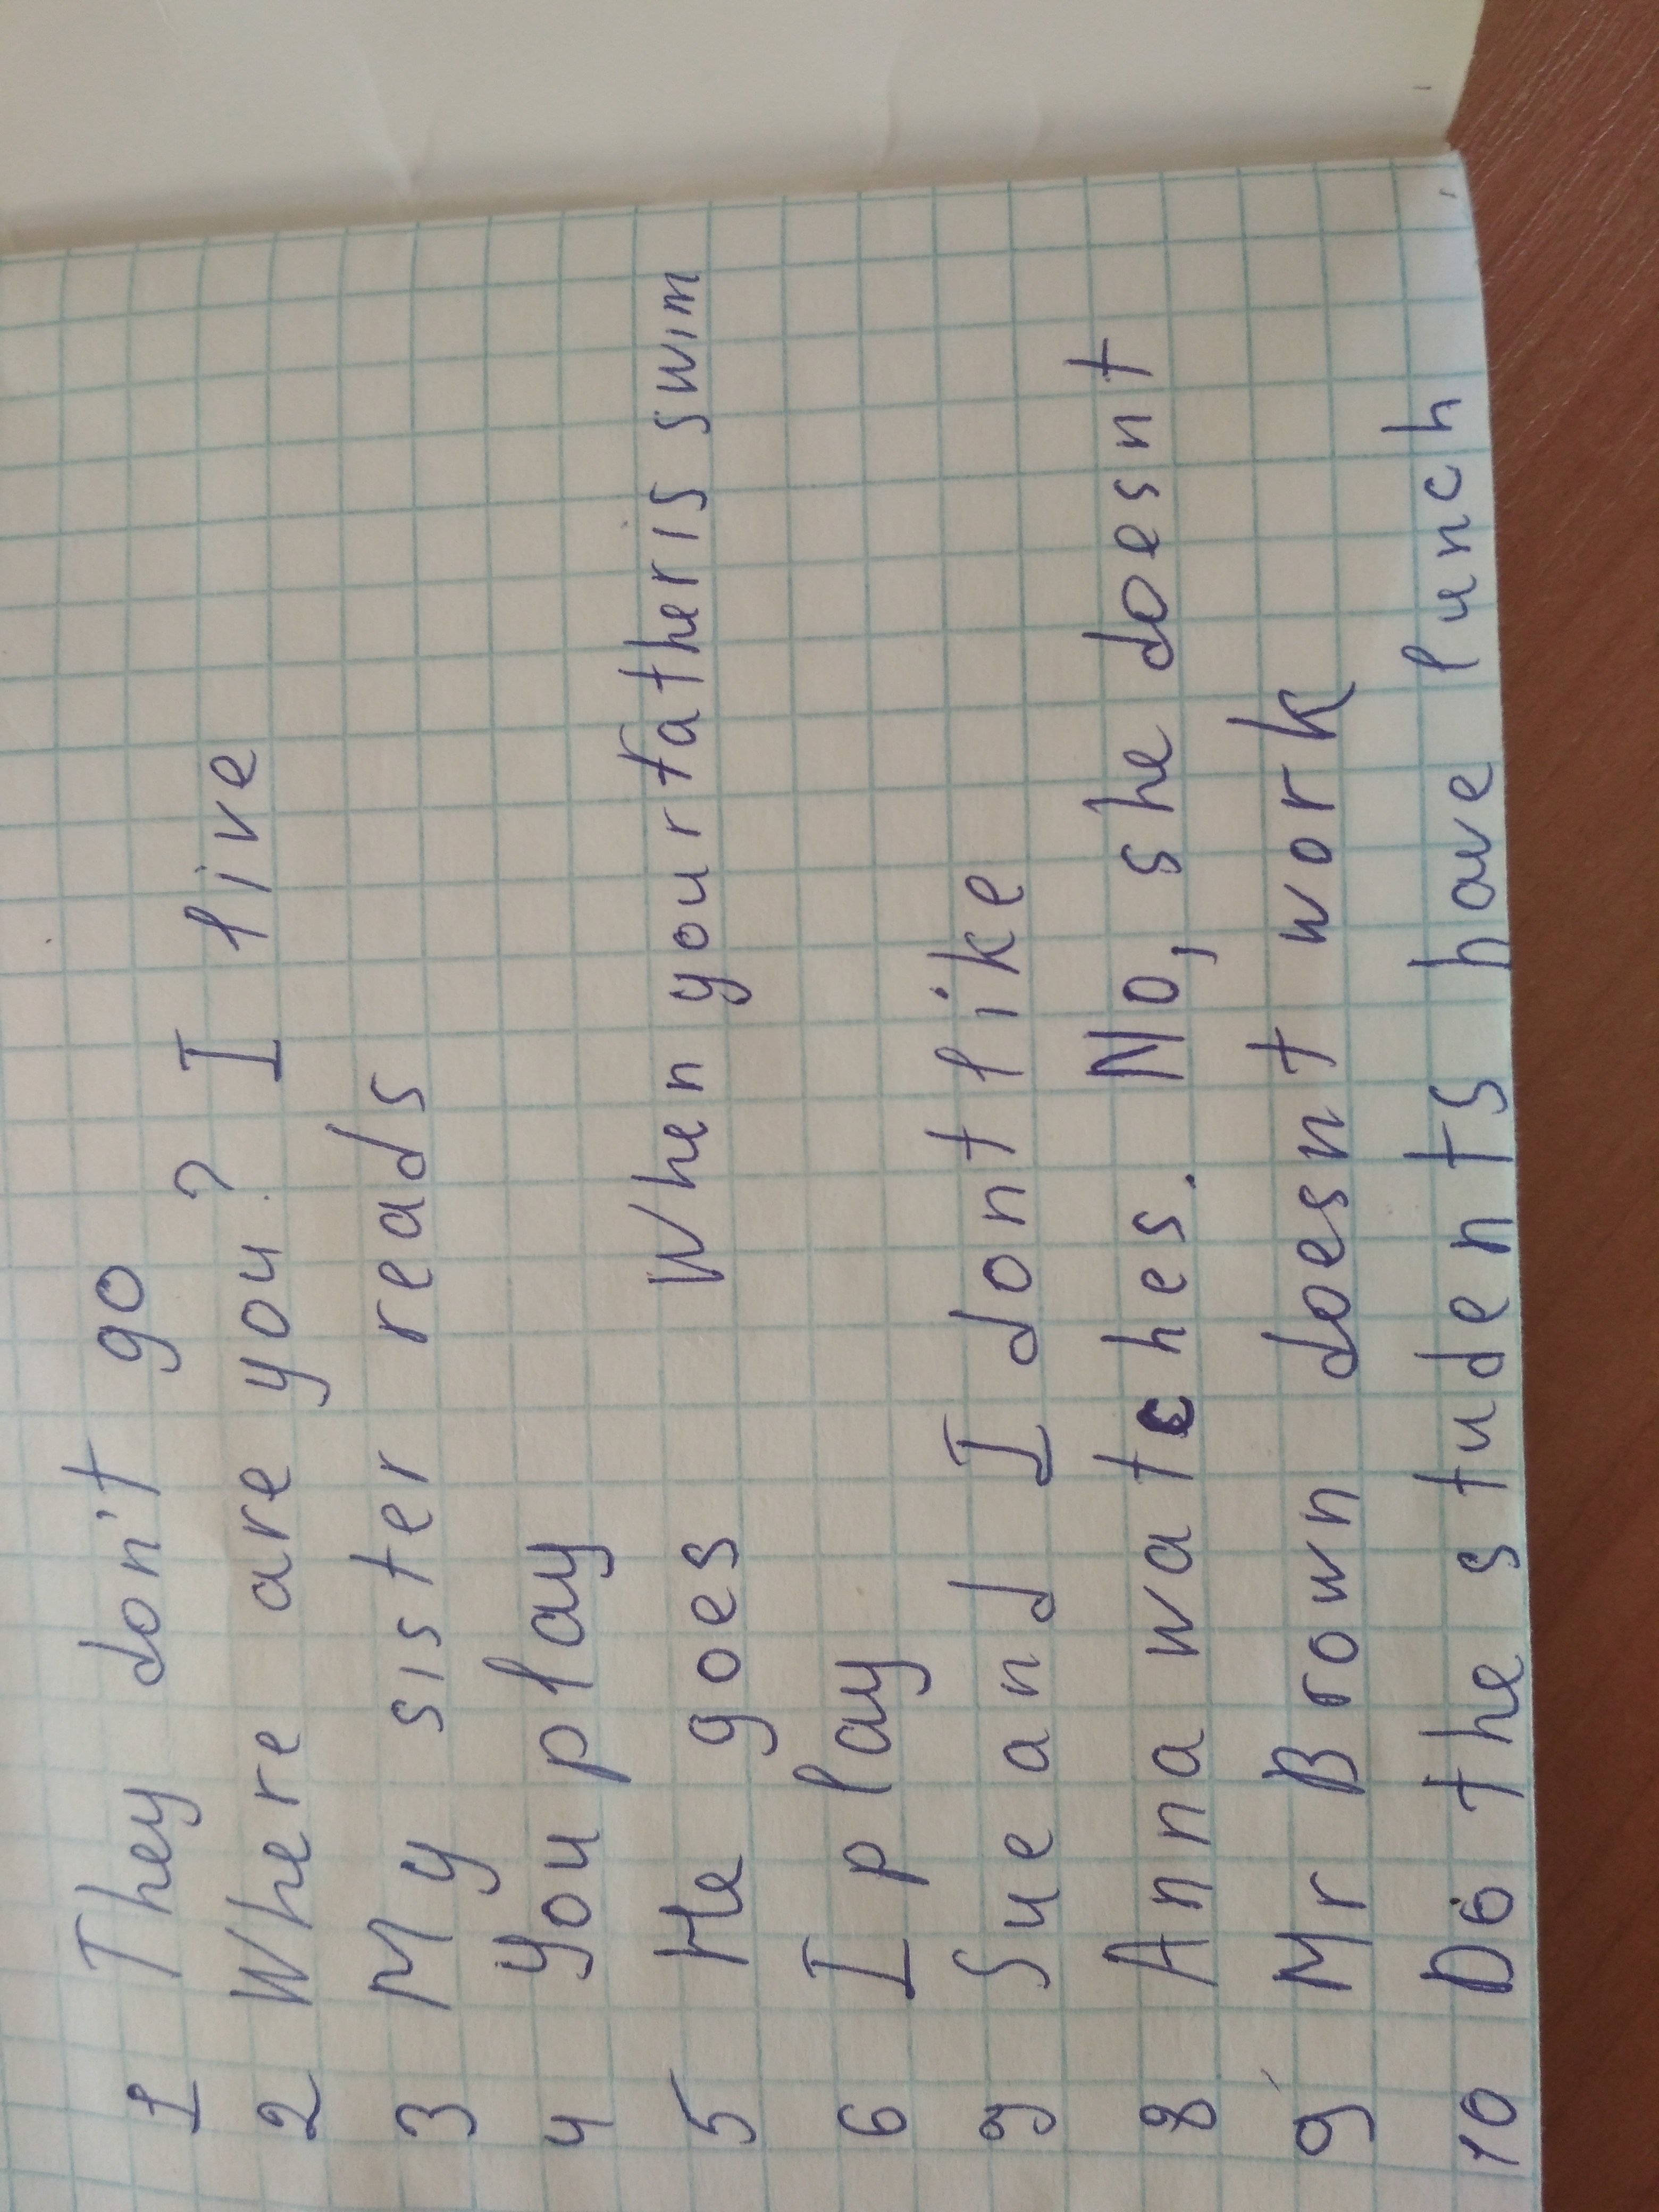 1 They don't go
2 Where are you? I live
3 My sister reads
4 You play
5 He goes When your father is swim
6 I play
9 Sue and I dont like
8 Anna watches. No, she doesnt
9 Mr Brown doesnt work
10 Do the students have lunch